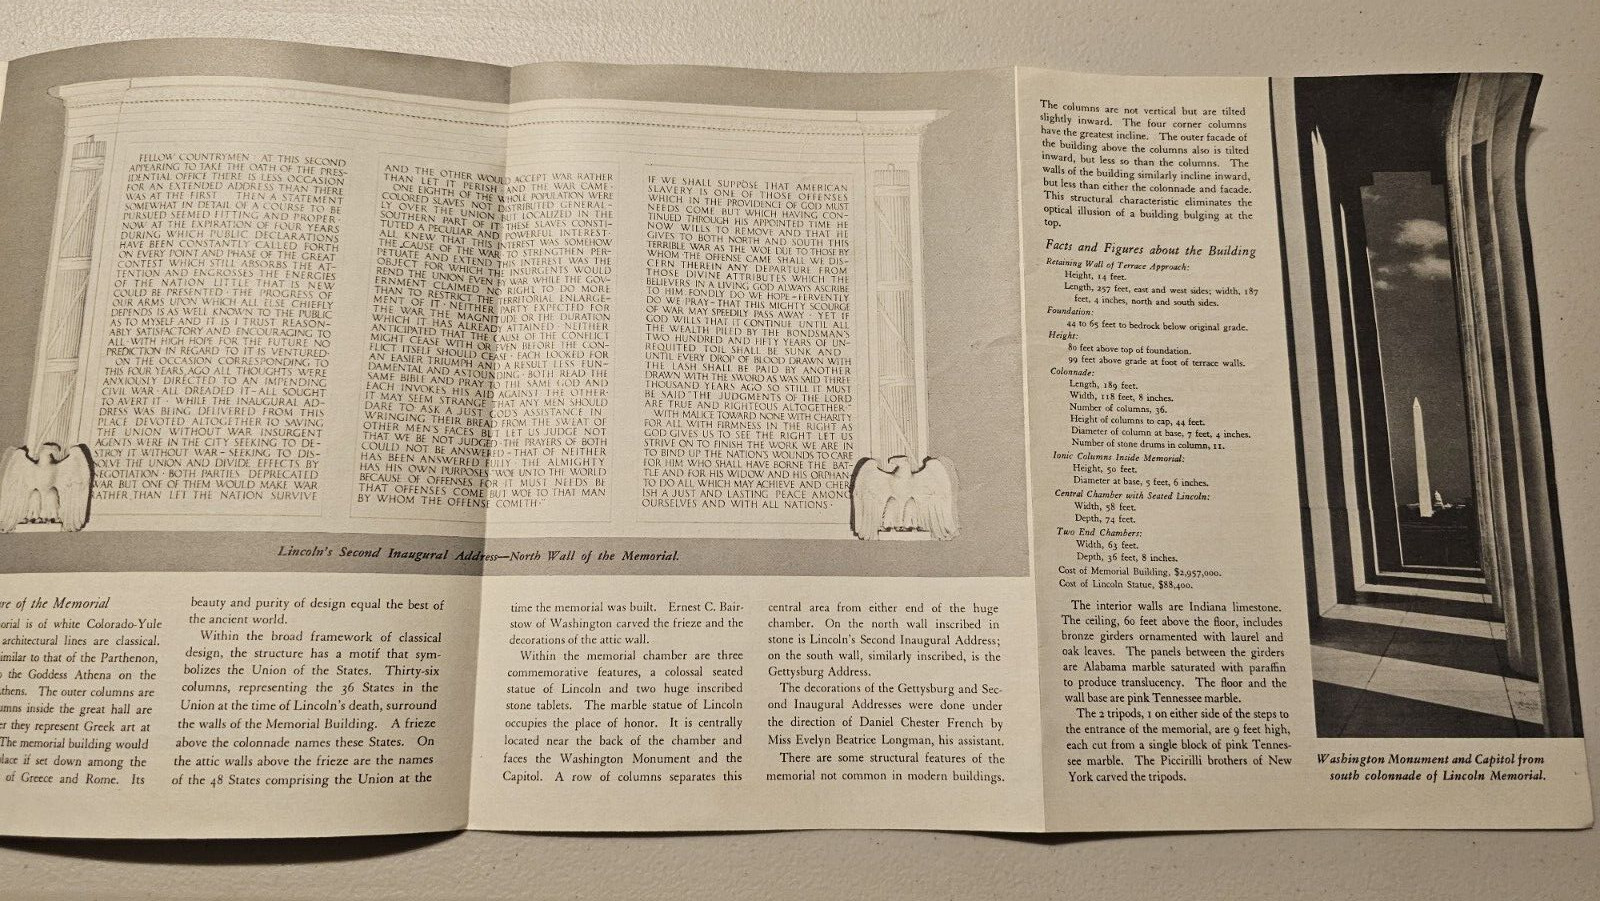 FELLOW COUNTRYMEN · AT THIS SECOND
APPEARING TO TAKE THE OATH OF THE PRES-
IDENTIAL OFFICE THERE IS LESS OCCASION
FOR AN EXTENDED ADDRESS THAN THERE
WAS AT THE FIRST · THEN A STATEMENT
SOMEWHAT IN DETAIL OF A COURSE TO BE
PURSUED SEEMED FITTING AND PROPER·
NOW AT THE EXPIRATION OF FOUR YEARS
DURING WHICH PUBLIC DECLARATIONS
HAVE BEEN CONSTANTLY CALLED FORTH
ON EVERY POINT AND PHASE OF THE GREAT
CONTEST WHICH STILL ABSORBS THE AT-
TENTION AND ENGROSSES THE ENERGIES
OF THE NATION LITTLE THAT IS NEW
COULD BE PRESENTED · THE PROGRESS OF
OUR ARMS UPON WHICH ALL ELSE CHIEFLY
DEPENDS IS AS WELL KNOWN TO THE PUBLIC
AS TO MYSELF AND IT IS I TRUST REASON-
ABLY SATISFACTORY AND ENCOURAGING TO
ALL · WITH HIGH HOPE FOR THE FUTURE NO
PREDICTION IN REGARD TO IT IS VENTURED·
ON THE OCCASION CORRESPONDING TO
THIS FOUR YEARS AGO ALL THOUGHTS WERE
ANXIOUSLY DIRECTED TO AN IMPENDING
CIVIL WAR · ALL DREADED IT – ALL SOUGHT
TO AVERT IT · WHILE THE INAUGURAL AD-
DRESS WAS BEING DELIVERED FROM THIS
PLACE DEVOTED ALTOGETHER TO SAVING
THE UNION WITHOUT WAR INSURGENT
AGENTS WERE IN THE CITY SEEKING TO DE-
STROY IT WITHOUT WAR – SEEKING TO DIS-
SOLVE THE UNION AND DIVIDE EFFECTS BY
NEGOTIATION · BOTH PARTIES DEPRECATED
WAR BUT ONE OF THEM WOULD MAKE WAR
RATHER THAN LET THE NATION SURVIVE
AND THE OTHER WOULD ACCEPT WAR RATHER
THAN LET IT PERISH · AND THE WAR CAME·
ONE EIGHTH OF THE WHOLE POPULATION WERE
COLORED SLAVES NOT DISTRIBUTED GENERAL-
LY OVER THE UNION BUT LOCALIZED IN THE
SOUTHERN PART OF IT · THESE SLAVES CONSTI-
TUTED A PECULIAR AND POWERFUL INTEREST·
ALL KNEW THAT THIS INTEREST WAS SOMEHOW
THE CAUSE OF THE WAR · TO STRENGTHEN PER-
PETUATE AND EXTEND THIS INTEREST WAS THE
OBJECT FOR WHICH THE INSURGENTS WOULD
REND THE UNION EVEN BY WAR WHILE THE GOV-
ERNMENT CLAIMED NO RIGHT TO DO MORE
THAN TO RESTRICT THE TERRITORIAL ENLARGE-
MENT OF IT · NEITHER PARTY EXPECTED FOR
THE WAR THE MAGNITUDE OR THE DURATION
WHICH IT HAS ALREADY ATTAINED · NEITHER
ANTICIPATED THAT THE CAUSE OF THE CONFLICT
MIGHT CEASE WITH OR EVEN BEFORE THE CON-
FLICT ITSELF SHOULD CEASE · EACH LOOKED FOR
AN EASIER TRIUMPH AND A RESULT LESS FUN-
DAMENTAL AND ASTOUNDING · BOTH READ THE
SAME BIBLE AND PRAY TO THE SAME GOD AND
EACH INVOKES HIS AID AGAINST THE OTHER·
IT MAY SEEM STRANGE THAT ANY MEN SHOULD
DARE TO ASK A JUST GOD'S ASSISTANCE IN
WRINGING THEIR BREAD FROM THE SWEAT OF
OTHER MEN'S FACES BUT LET US JUDGE NOT
THAT WE BE NOT JUDGED · THE PRAYERS OF BOTH
COULD NOT BE ANSWERED – THAT OF NEITHER
HAS BEEN ANSWERED FULLY · THE ALMIGHTY
HAS HIS OWN PURPOSES · "WOE UNTO THE WORLD
BECAUSE OF OFFENSES FOR IT MUST NEEDS BE
THAT OFFENSES COME BUT WOE TO THAT MAN
BY WHOM THE OFFENSE COMETH·"
IF WE SHALL SUPPOSE THAT AMERICAN
SLAVERY IS ONE OF THOSE OFFENSES
WHICH IN THE PROVIDENCE OF GOD MUST
NEEDS COME BUT WHICH HAVING CON-
TINUED THROUGH HIS APPOINTED TIME HE
NOW WILLS TO REMOVE AND THAT HE
GIVES TO BOTH NORTH AND SOUTH THIS
TERRIBLE WAR AS THE WOE DUE TO THOSE BY
WHOM THE OFFENSE CAME SHALL WE DIS-
CERN THEREIN ANY DEPARTURE FROM
THOSE DIVINE ATTRIBUTES WHICH THE
BELIEVERS IN A LIVING GOD ALWAYS ASCRIBE
TO HIM · FONDLY DO WE HOPE – FERVENTLY
DO WE PRAY – THAT THIS MIGHTY SCOURGE
OF WAR MAY SPEEDILY PASS AWAY · YET IF
GOD WILLS THAT IT CONTINUE UNTIL ALL
THE WEALTH PILED BY THE BONDSMAN'S
TWO HUNDRED AND FIFTY YEARS OF UN-
REQUITED TOIL SHALL BE SUNK AND
UNTIL EVERY DROP OF BLOOD DRAWN WITH
THE LASH SHALL BE PAID BY ANOTHER
DRAWN WITH THE SWORD AS WAS SAID THREE
THOUSAND YEARS AGO SO STILL IT MUST
BE SAID "THE JUDGMENTS OF THE LORD
ARE TRUE AND RIGHTEOUS ALTOGETHER·"
WITH MALICE TOWARD NONE WITH CHARITY
FOR ALL WITH FIRMNESS IN THE RIGHT AS
GOD GIVES US TO SEE THE RIGHT LET US
STRIVE ON TO FINISH THE WORK WE ARE IN
TO BIND UP THE NATION'S WOUNDS TO CARE
FOR HIM WHO SHALL HAVE BORNE THE BAT-
TLE AND FOR HIS WIDOW AND HIS ORPHAN
TO DO ALL WHICH MAY ACHIEVE AND CHER-
ISH A JUST AND LASTING PEACE AMONG
OURSELVES AND WITH ALL NATIONS·
Lincoln's Second Inaugural Address—North Wall of the Memorial.
re of the Memorial
orial is of white Colorado-Yule
architectural lines are classical.
imilar to that of the Parthenon,
o the Goddess Athena on the
thens. The outer columns are
umns inside the great hall are
er they represent Greek art at
The memorial building would
lace if set down among the
of Greece and Rome. Its
beauty and purity of design equal the best of
the ancient world.
Within the broad framework of classical
design, the structure has a motif that sym-
bolizes the Union of the States. Thirty-six
columns, representing the 36 States in the
Union at the time of Lincoln's death, surround
the walls of the Memorial Building. A frieze
above the colonnade names these States. On
the attic walls above the frieze are the names
of the 48 States comprising the Union at the
time the memorial was built. Ernest C. Bair-
stow of Washington carved the frieze and the
decorations of the attic wall.
Within the memorial chamber are three
commemorative features, a colossal seated
statue of Lincoln and two huge inscribed
stone tablets. The marble statue of Lincoln
occupies the place of honor. It is centrally
located near the back of the chamber and
faces the Washington Monument and the
Capitol. A row of columns separates this
central area from either end of the huge
chamber. On the north wall inscribed in
stone is Lincoln's Second Inaugural Address;
on the south wall, similarly inscribed, is the
Gettysburg Address.
The decorations of the Gettysburg and Sec-
ond Inaugural Addresses were done under
the direction of Daniel Chester French by
Miss Evelyn Beatrice Longman, his assistant.
There are some structural features of the
memorial not common in modern buildings.
The columns are not vertical but are tilted
slightly inward. The four corner columns
have the greatest incline. The outer facade of
the building above the columns also is tilted
inward, but less so than the columns. The
walls of the building similarly incline inward,
but less than either the colonnade and facade.
This structural characteristic eliminates the
optical illusion of a building bulging at the
top.
Facts and Figures about the Building
Retaining Wall of Terrace Approach:
Height, 14 feet.
Length, 257 feet, east and west sides; width, 187
feet, 4 inches, north and south sides.
Foundation:
44 to 65 feet to bedrock below original grade.
Height:
80 feet above top of foundation.
99 feet above grade at foot of terrace walls.
Colonnade:
Length, 189 feet.
Width, 118 feet, 8 inches.
Number of columns, 36.
Height of columns to cap, 44 feet.
Diameter of column at base, 7 feet, 4 inches.
Number of stone drums in column, 11.
Ionic Columns Inside Memorial:
Height, 50 feet.
Diameter at base, 5 feet, 6 inches.
Central Chamber with Seated Lincoln:
Width, 58 feet.
Depth, 74 feet.
Two End Chambers:
Width, 63 feet.
Depth, 36 feet, 8 inches.
Cost of Memorial Building, $2,957,000.
Cost of Lincoln Statue, $88,400.
The interior walls are Indiana limestone.
The ceiling, 60 feet above the floor, includes
bronze girders ornamented with laurel and
oak leaves. The panels between the girders
are Alabama marble saturated with paraffin
to produce translucency. The floor and the
wall base are pink Tennessee marble.
The 2 tripods, 1 on either side of the steps to
the entrance of the memorial, are 9 feet high,
each cut from a single block of pink Tennes-
see marble. The Piccirilli brothers of New
York carved the tripods.
Washington Monument and Capitol from
south colonnade of Lincoln Memorial.